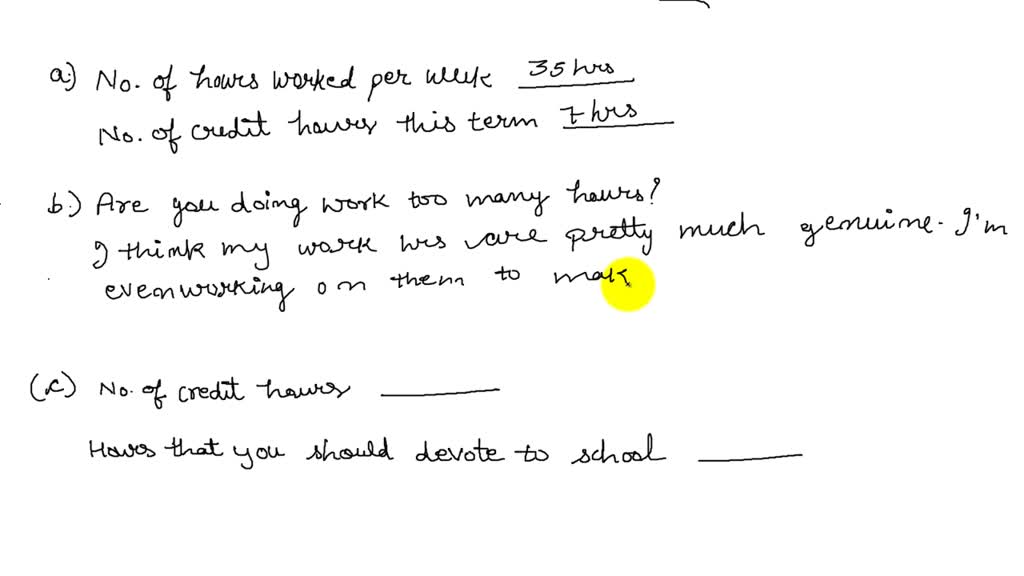 a.) No. of hours worked per week 35 hrs
No. of credit hours this term 7 hrs
b.) Are you doing work too many hours?
I think my work hrs are pretty much genuine. I'm
even working on them to mak
(c) No. of credit hours ______
Hours that you should devote to school ______